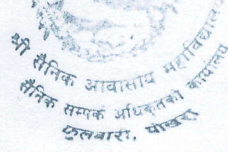 श्री सैनिक आवासीय महाविद्यालय
सैनिक सम्पर्क अधिकृतको कार्यालय
फुलबारी, पोखरा